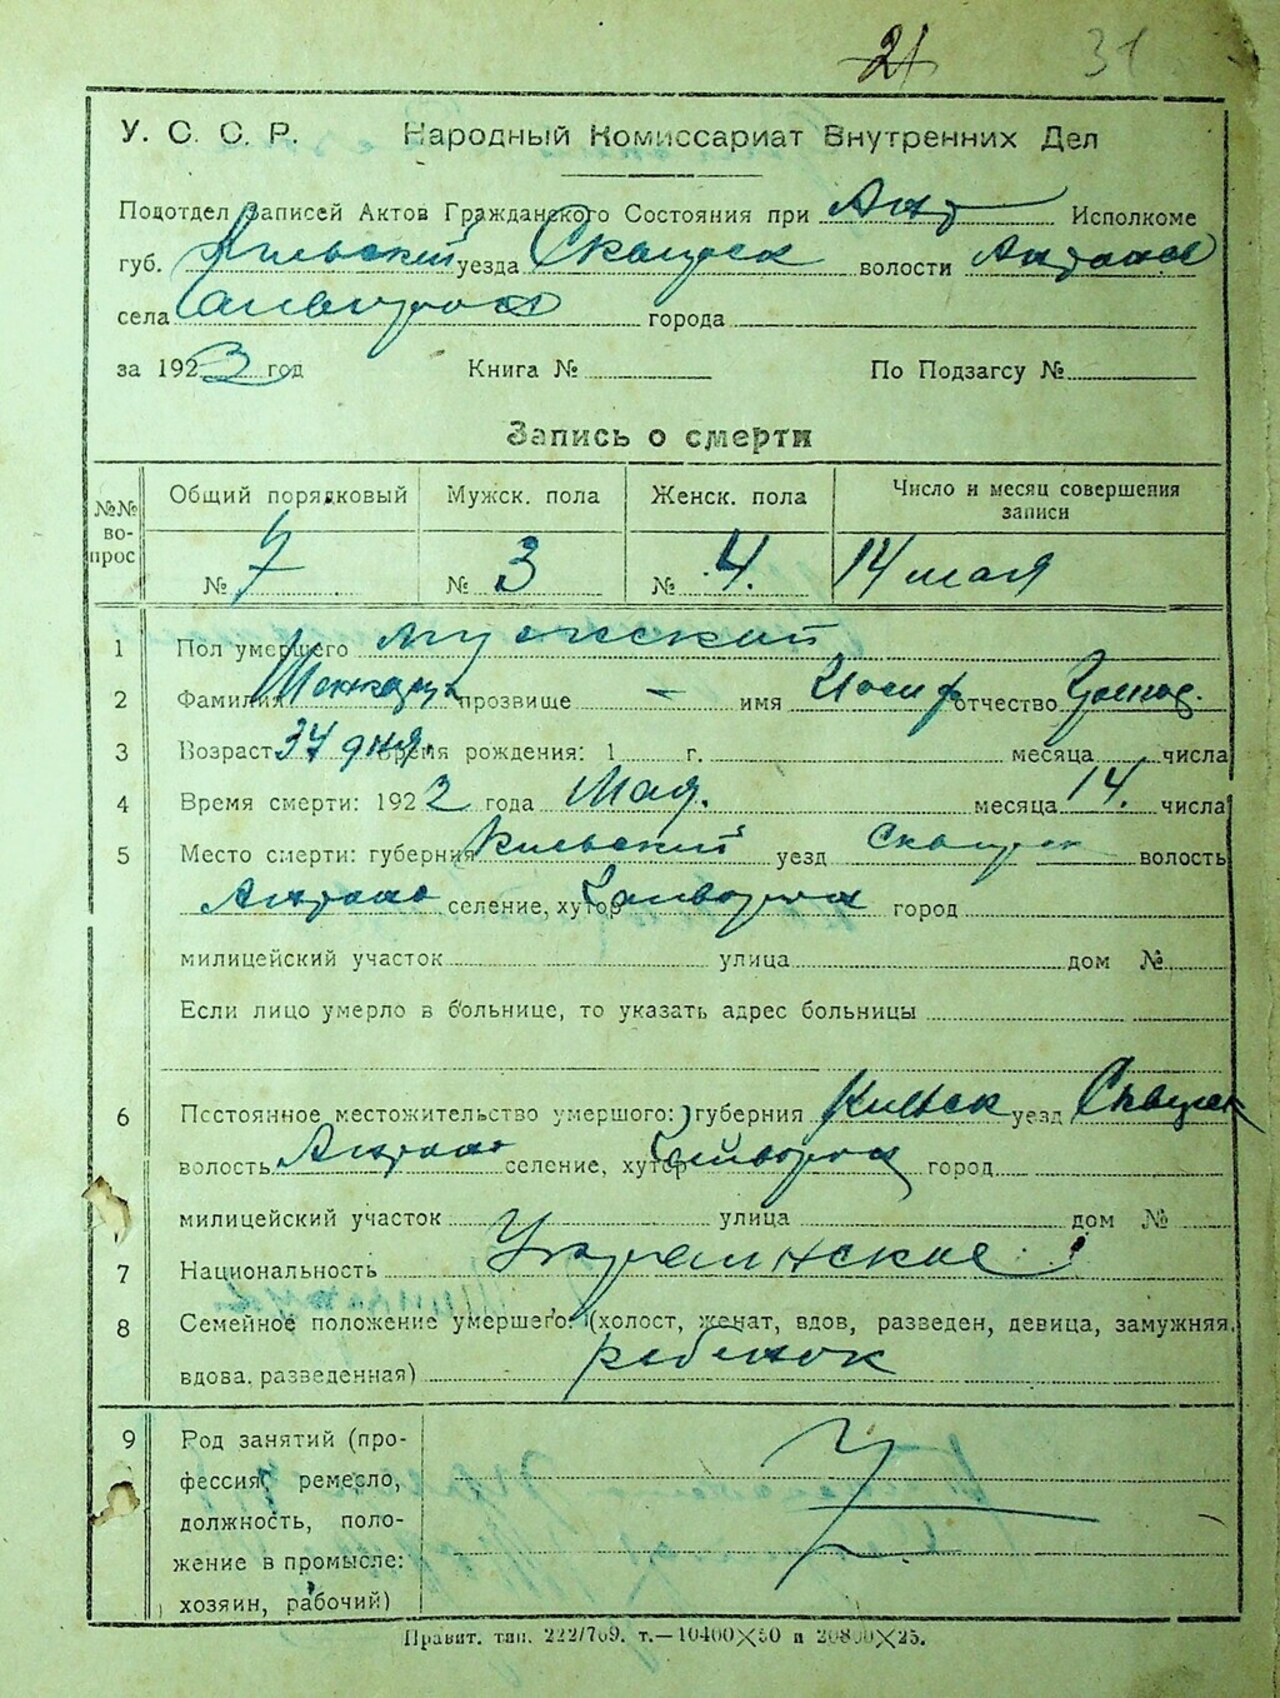 21 31
У. С. С. Р. Народный Комиссариат Внутренних Дел
Подотдел Записей Актов Гражданского Состояния при Исполкоме
губ. Киевский уезда Сквирск волости
села города
за 1923 год Книга № По Подзагсу №
Запись о смерти
№№ во- прос Общий порядковый Мужск. пола Женск. пола Число и месяц совершения записи
№ 7 № 3 № 4. 14 мая
1 Пол умершего мужской
2 Фамилия прозвище - имя Иосиф отчество
3 Возраст 34 дня. Время рождения: 1 г. месяца числа
4 Время смерти: 1923 года Мая. месяца 14. числа
5 Место смерти: губерния Киевский уезд Сквирск волость
селение, хутор город
милицейский участок улица дом №
Если лицо умерло в больнице, то указать адрес больницы
6 Постоянное местожительство умершого: губерния Киевск уезд Сквирск
волость селение, хутор город
милицейский участок улица дом №
7 Национальность Украинское
8 Семейное положение умершего: (холост, женат, вдов, разведен, девица, замужняя,
вдова, разведенная) ребенок
9 Род занятий (про-
фессия, ремесло,
должность, поло-
жение в промысле:
хозяин, рабочий)
Правит. тип. 222/769. т.—10400×50 и 20800×25.